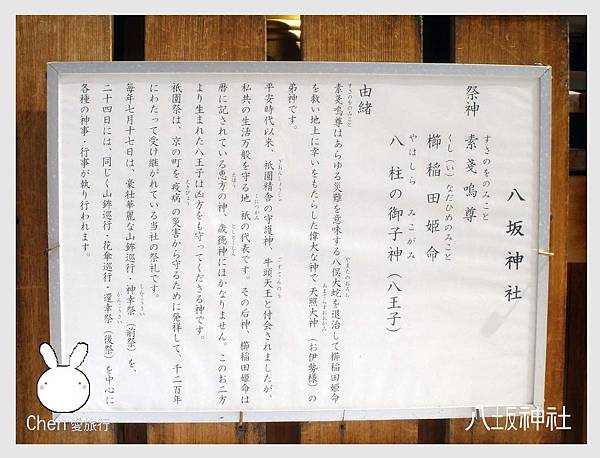 八坂神社
祭神
すさのをのみこと
素戔嗚尊
くし(い)なだひめのみこと
櫛稲田姫命
やはしら みこがみ
八柱の御子神(八王子)
由緒
すさのをのみこと やまたのおろち
素戔嗚尊はあらゆる災難を意味する八俣大蛇を退治して櫛稲田姫命
あまてらすおおかみ
を救い地上に幸いをもたらした偉大な神で天照大神(お伊勢様)の
弟神です。
ぎおんしょうじゃ ごずてんのう
平安時代以来、祇園精舎の守護神、牛頭天王と付会されましたが、
くにつかみ
私共の生活万般を守る地祇の代表です。その后神、櫛稲田姫命は
えほう としとくじん
暦に記されている恵方の神、歳徳神にほかなりません。このお二方
より生まれた八王子は凶方をも守ってくださる神です。
えきびょう
祇園祭は、京の町を疫病の災害から守るために発祥して、千二百年
にわたって受け継がれている当社の祭礼です。
しんこうさい
毎年七月十七日は、豪壮華麗な山鉾巡行・神幸祭(前祭)を、
かんこうさい
二十四日には、同じく山鉾巡行・花傘巡行・還幸祭(後祭)を中心に
各種の神事・行事が執り行われます。
Chen 愛旅行
八坂神社